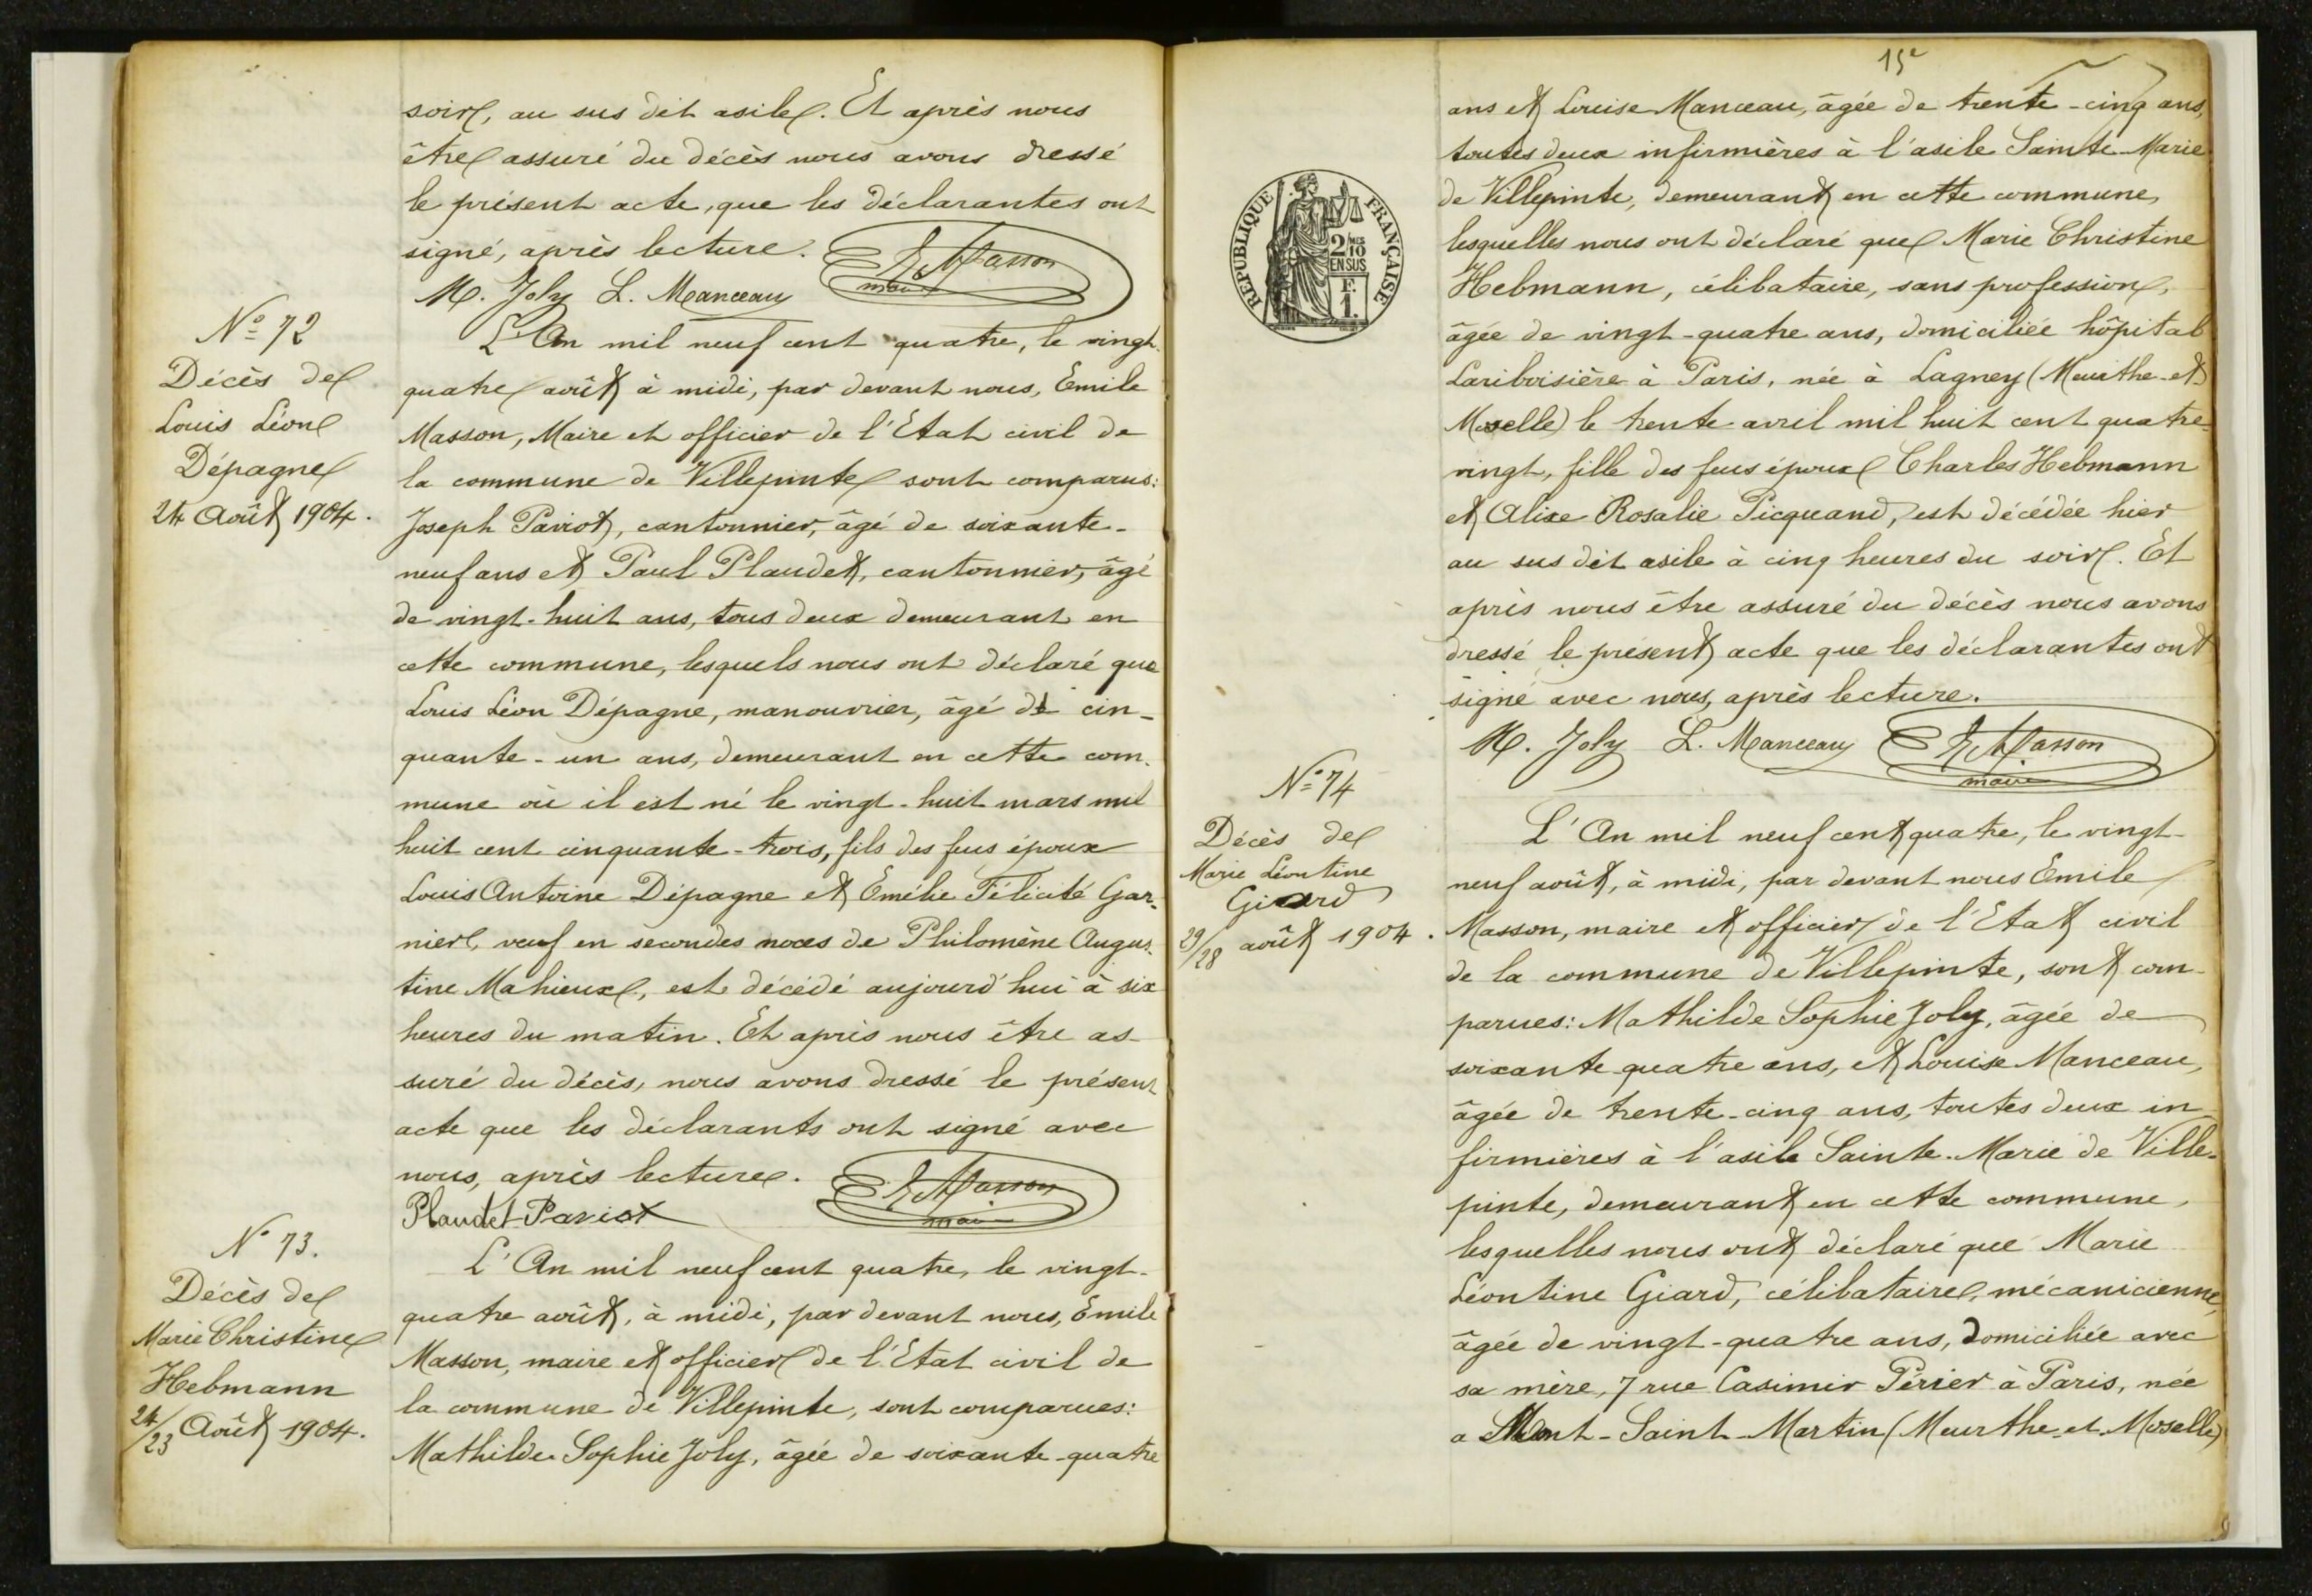 soir, au sus dit asile. Et après nous
être assuré du décès nous avons dressé
le présent acte, que les déclarantes ont
signé, après lecture. E Masson
M. Joly L. Manceau maire
N° 72
Décès de
Louis Léon
Dépagne
24 Août 1904.
L'An mil neuf cent quatre, le vingt-
quatre août à midi, par devant nous, Emile
Masson, Maire et officier de l'Etat civil de
la commune de Villepinte sont comparus:
Joseph Paviot, cantonnier, âgé de soixante-
neuf ans et Paul Plaudet, cantonnier, âgé
de vingt-huit ans, tous deux demeurant en
cette commune, lesquels nous ont déclaré que
Louis Léon Dépagne, manouvrier, âgé de cin-
quante-un ans, demeurant en cette com-
mune où il est né le vingt-huit mars mil
huit cent cinquante-trois, fils des feus époux
Louis Antoine Dépagne et Emélie Félicité Gar-
nier, veuf en secondes noces de Philomène Augus-
tine Mahieux, est décédé aujourd'hui à six
heures du matin. Et après nous être as-
suré du décès, nous avons dressé le présent
acte que les déclarants ont signé avec
nous, après lecture. E Masson
Plaudet Paviot maire
N° 73.
Décès de
Marie Christine
Hebmann
24/23 Août 1904.
L'An mil neuf cent quatre, le vingt-
quatre août, à midi, par devant nous, Emile
Masson, maire et officier de l'Etat civil de
la commune de Villepinte, sont comparues:
Mathilde Sophie Joly, âgée de soixante-quatre
15e
ans et Louise Manceau, âgée de trente-cinq ans,
toutes deux infirmières à l'asile Sainte-Marie
de Villepinte, demeurant en cette commune,
lesquelles nous ont déclaré que Marie Christine
Hebmann, célibataire, sans profession,
âgée de vingt-quatre ans, domiciliée hôpital
Lariboisière à Paris, née à Lagney (Meurthe-et
Moselle) le trente avril mil huit cent quatre-
vingt, fille des feus époux Charles Hebmann
et Alixe Rosalie Picquand, est décédée hier
au sus dit asile à cinq heures du soir. Et
après nous être assuré du décès nous avons
dressé le présent acte que les déclarantes ont
signé avec nous, après lecture.
M. Joly L. Manceau E Masson
maire
RÉPUBLIQUE FRANÇAISE
2/10
EN SUS
F.
1.
N° 74
Décès de
Marie Léontine
Giard
29/28 août 1904.
L'An mil neuf cent quatre, le vingt-
neuf août, à midi, par devant nous Emile
Masson, maire et officier de l'Etat civil
de la commune de Villepinte, sont com-
parues: Mathilde Sophie Joly, âgée de
soixante-quatre ans, et Louise Manceau,
âgée de trente-cinq ans, toutes deux in-
firmières à l'asile Sainte-Marie de Ville-
pinte, demeurant en cette commune,
lesquelles nous ont déclaré que Marie
Léontine Giard, célibataire, mécanicienne,
âgée de vingt-quatre ans, domiciliée avec
sa mère, 7 rue Casimir Périer à Paris, née
a Mont-Saint-Martin (Meurthe-et-Moselle)